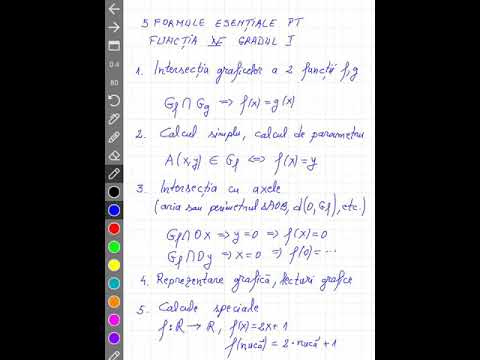 5 FORMULE ESENȚIALE PT
FUNCȚIA DE GRADUL I
1. Intersecția graficelor a 2 funcții f, g
Gf ∩ Gg ⇒ f(x) = g(x)
2. Calcul simplu, calcul de parametru
A(x,y) ∈ Gf ⇔ f(x) = y
3. Intersecția cu axele
(aria sau perimetrul ΔAOB, d(O, Gf), etc.)
Gf ∩ Ox ⇒ y = 0 ⇒ f(x) = 0
Gf ∩ Oy ⇒ x = 0 ⇒ f(0) = ...
4. Reprezentare grafică, lecturi grafice
5. Calcule speciale
f: R → R, f(x) = 2x + 1
f(nucă) = 2 · nucă + 1
0.4
80